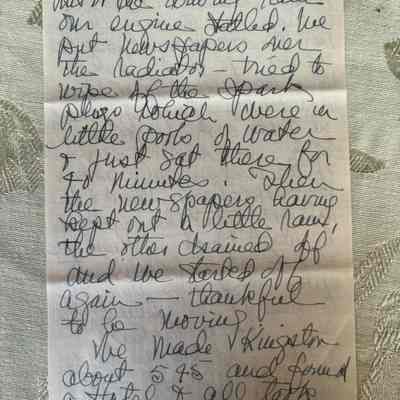 our engine stalled. We
put newspapers over
the radiator — tried to
wipe off the spark
plugs which were in
little pools of water
& just sat there for
40 minutes. Then
the newspapers having
kept out a little rain,
the other drained off
and we started off
again — thankful
to be moving
We made Kingston
about 5 45 and found
a Hotel & all